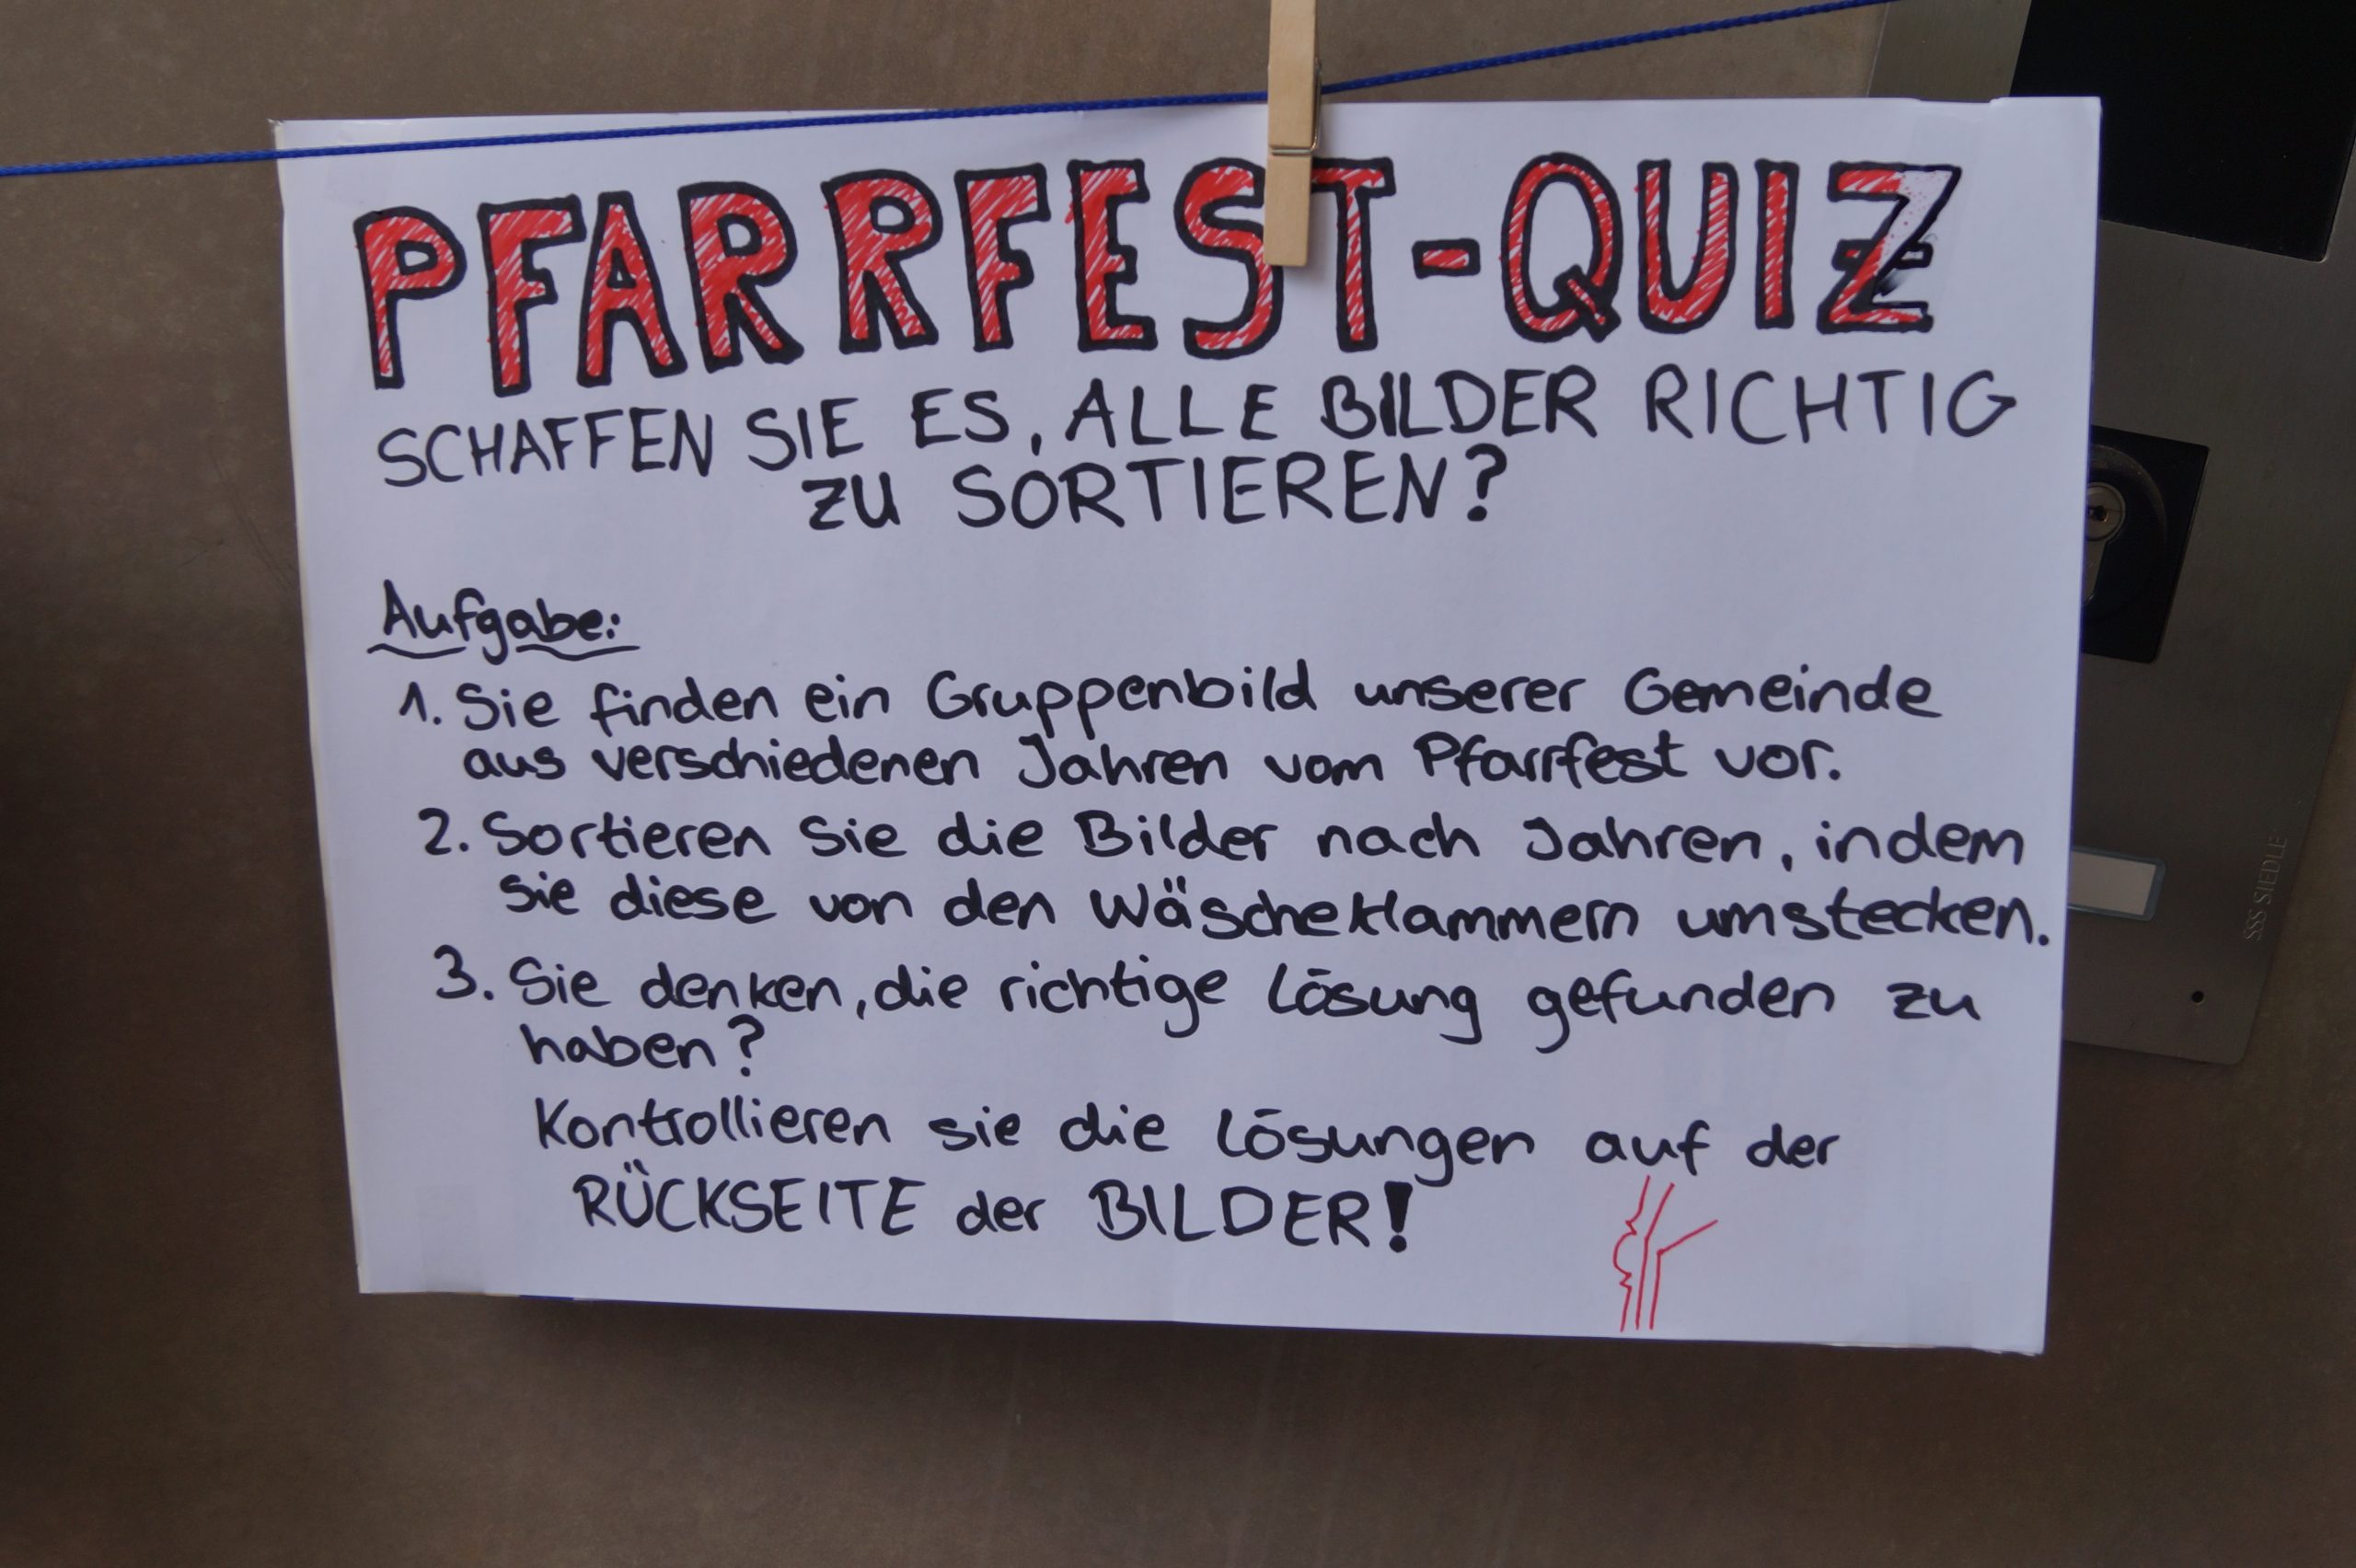 PFARRFEST-QUIZ
SCHAFFEN SIE ES, ALLE BILDER RICHTIG
ZU SORTIEREN?
Aufgabe:
1. Sie finden ein Gruppenbild unserer Gemeinde
aus verschiedenen Jahren vom Pfarrfest vor.
2. Sortieren Sie die Bilder nach Jahren, indem
sie diese von den Wäscheklammern umstecken.
3. Sie denken, die richtige Lösung gefunden zu
haben?
Kontrollieren sie die Lösungen auf der
RÜCKSEITE der BILDER!
SSS SIEDLE